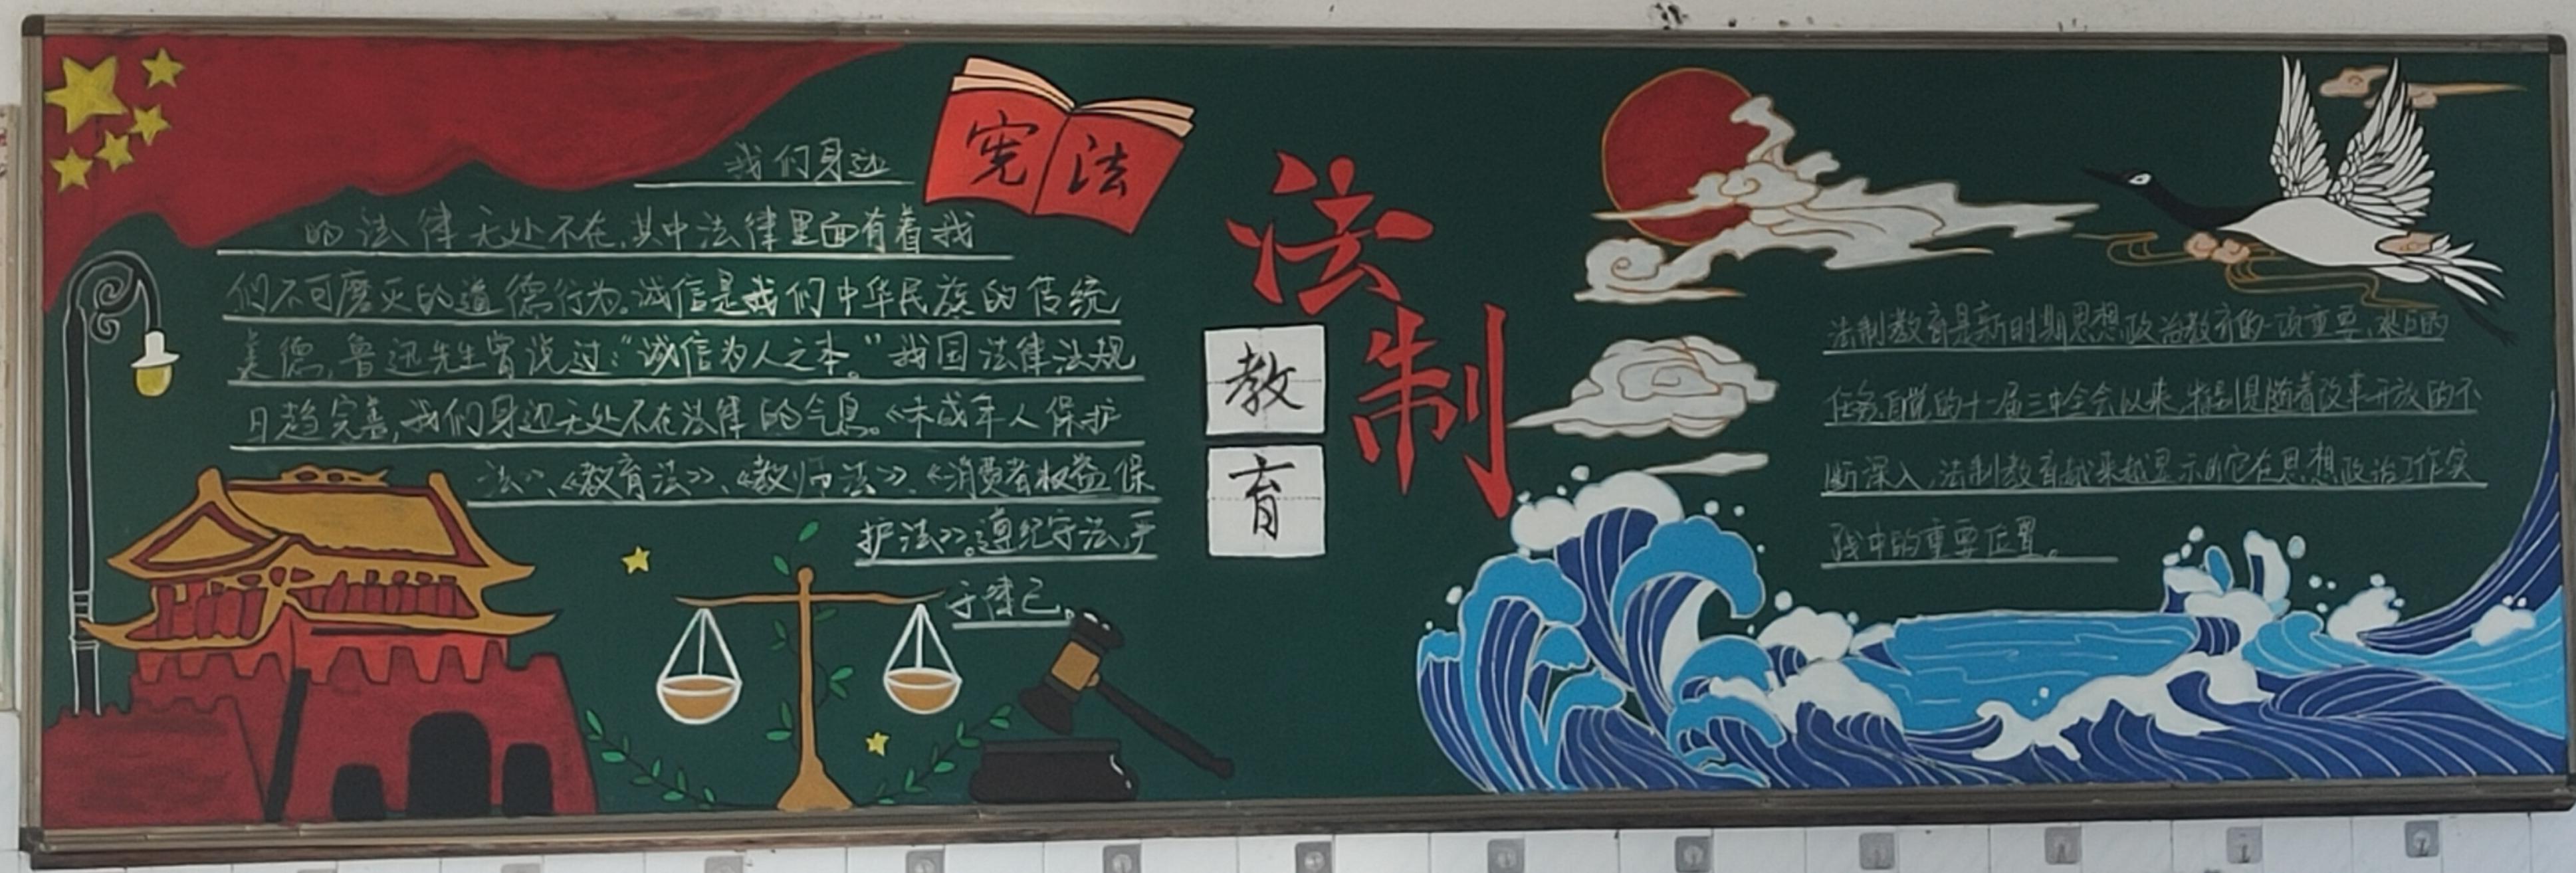 宪法
我们身边
的法律无处不在,其中法律里面有着我
们不可磨灭的道德行为。诚信是我们中华民族的传统
美德,鲁迅先生曾说过:“诚信为人之本。”我国法律法规
日趋完善,我们身边无处不在法律的气息。《未成年人保护
法》、《教育法》、《教师法》、《消费者权益保
护法》。遵纪守法,严
于律己。
法制
教育
法制教育是新时期思想政治教育的一项重要,长的
任务,自党的十一届三中全会以来,特别是随着改革开放的不
断深入,法制教育越来越显示的它在思想政治工作实
践中的重要位置。